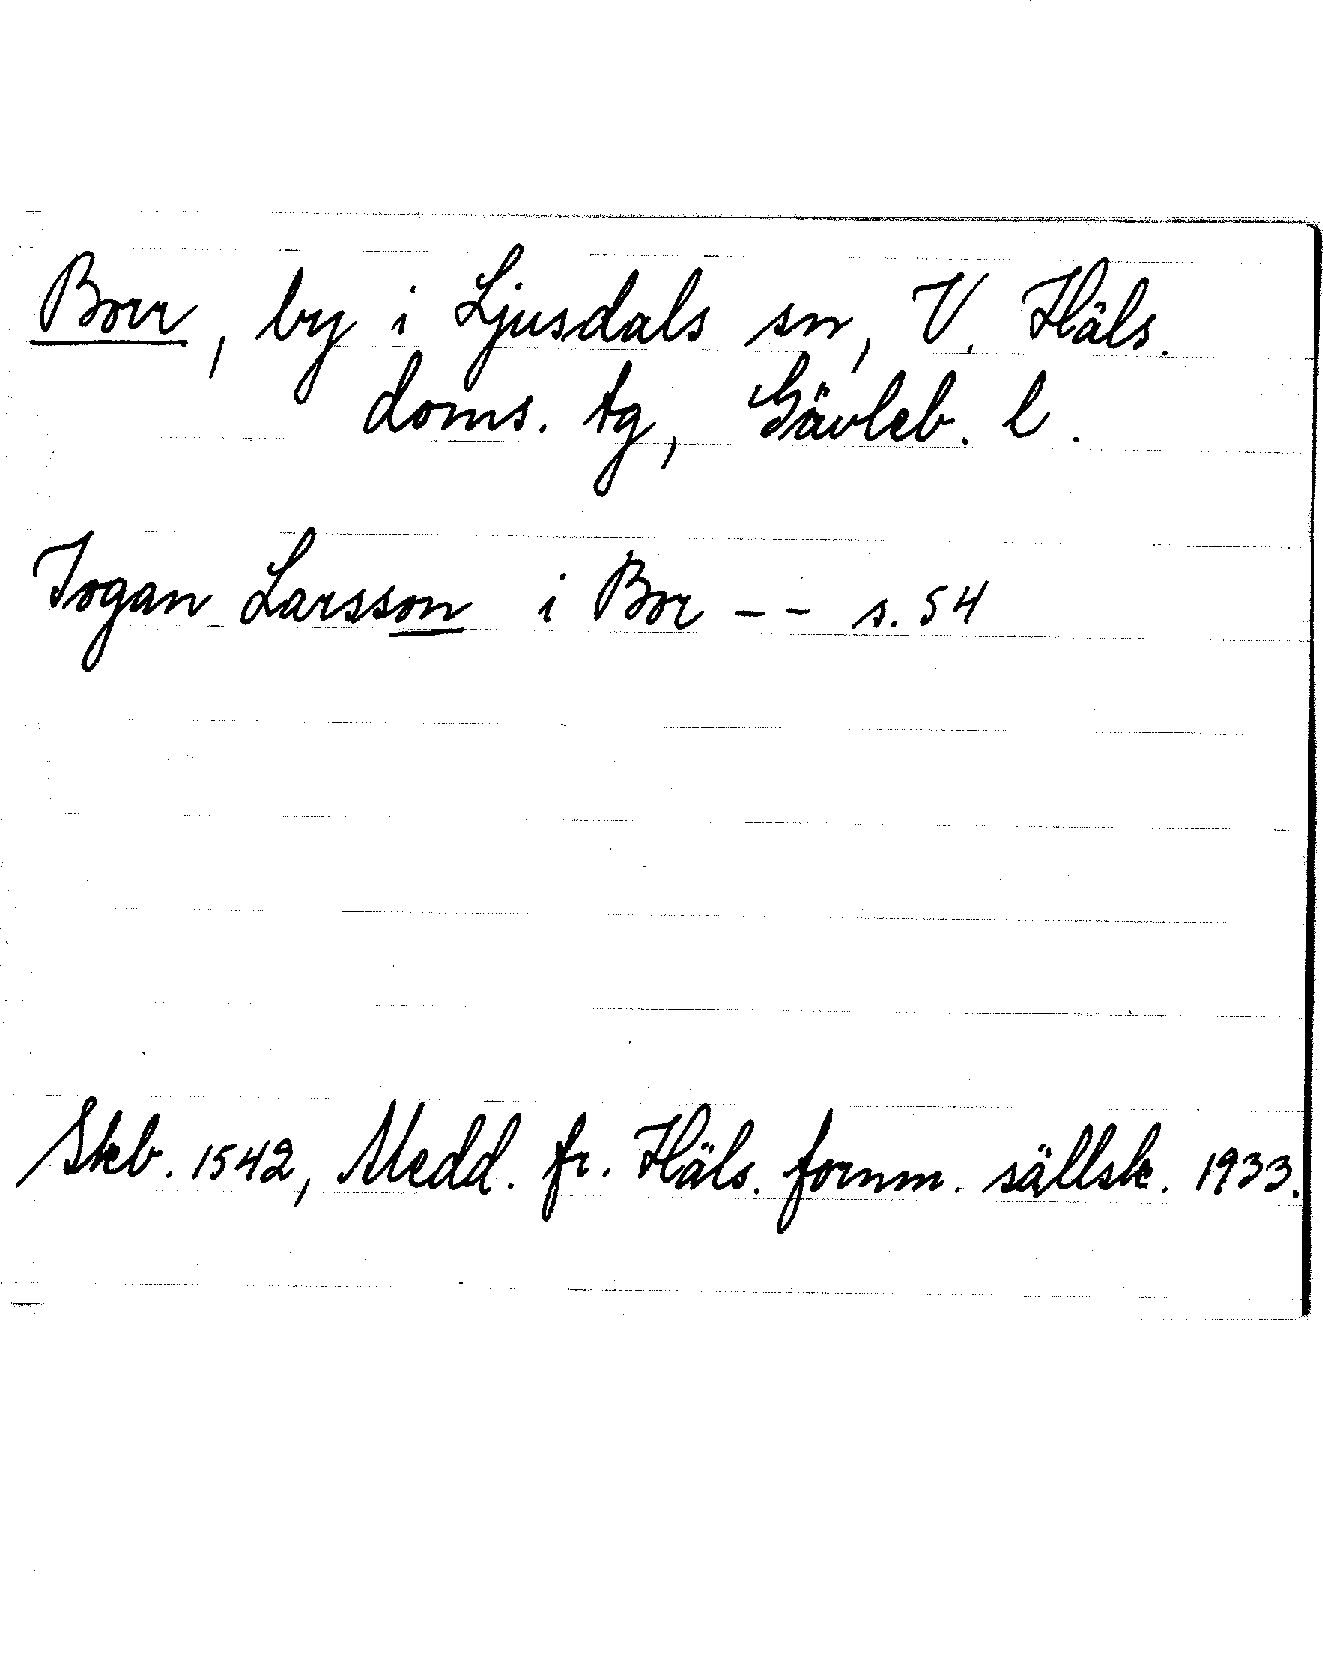 Borr, by i Ljusdals sn, V. Häls.
doms. tg, Gävleb. l.
Jogan Larsson i Bor -- s. 54
Skb. 1542, Medd. fr. Häls. fornm. sällsk. 1933.